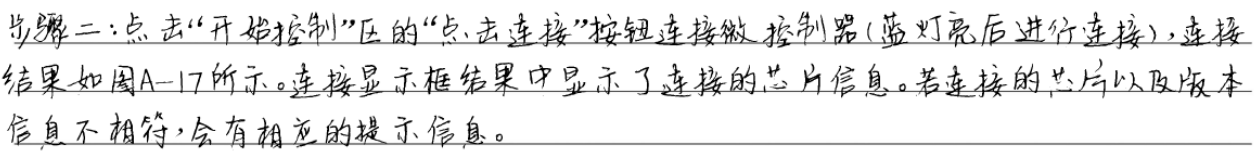 步骤二:点击“开始控制”区的“点击连接”按钮连接微控制器(蓝灯亮后进行连接),连接
结果如图A-17所示。连接显示框结果中显示了连接的芯片信息。若连接的芯片以及版本
信息不相符,会有相应的提示信息。